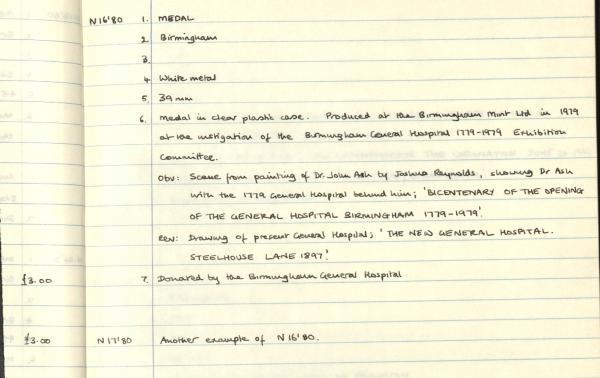 N16'80 1. MEDAL
2 Birmingham
3.
4 White metal
5. 39 mm
6. Medal in clear plastic case. Produced at the Birmingham Mint Ltd in 1979
at the instigation of the Birmingham General Hospital 1779-1979 Exhibition
Committee.
Obv: Scene from painting of Dr. John Ash by Joshua Reynolds, showing Dr Ash
with the 1779 General Hospital behind him; 'BICENTENARY OF THE OPENING
OF THE GENERAL HOSPITAL BIRMINGHAM 1779-1979'.
Rev: Drawing of present General Hospital; 'THE NEW GENERAL HOSPITAL.
STEELHOUSE LANE 1897'.
£3.00 7. Donated by the Birmingham General Hospital
£3.00 N17'80 Another example of N16'80.